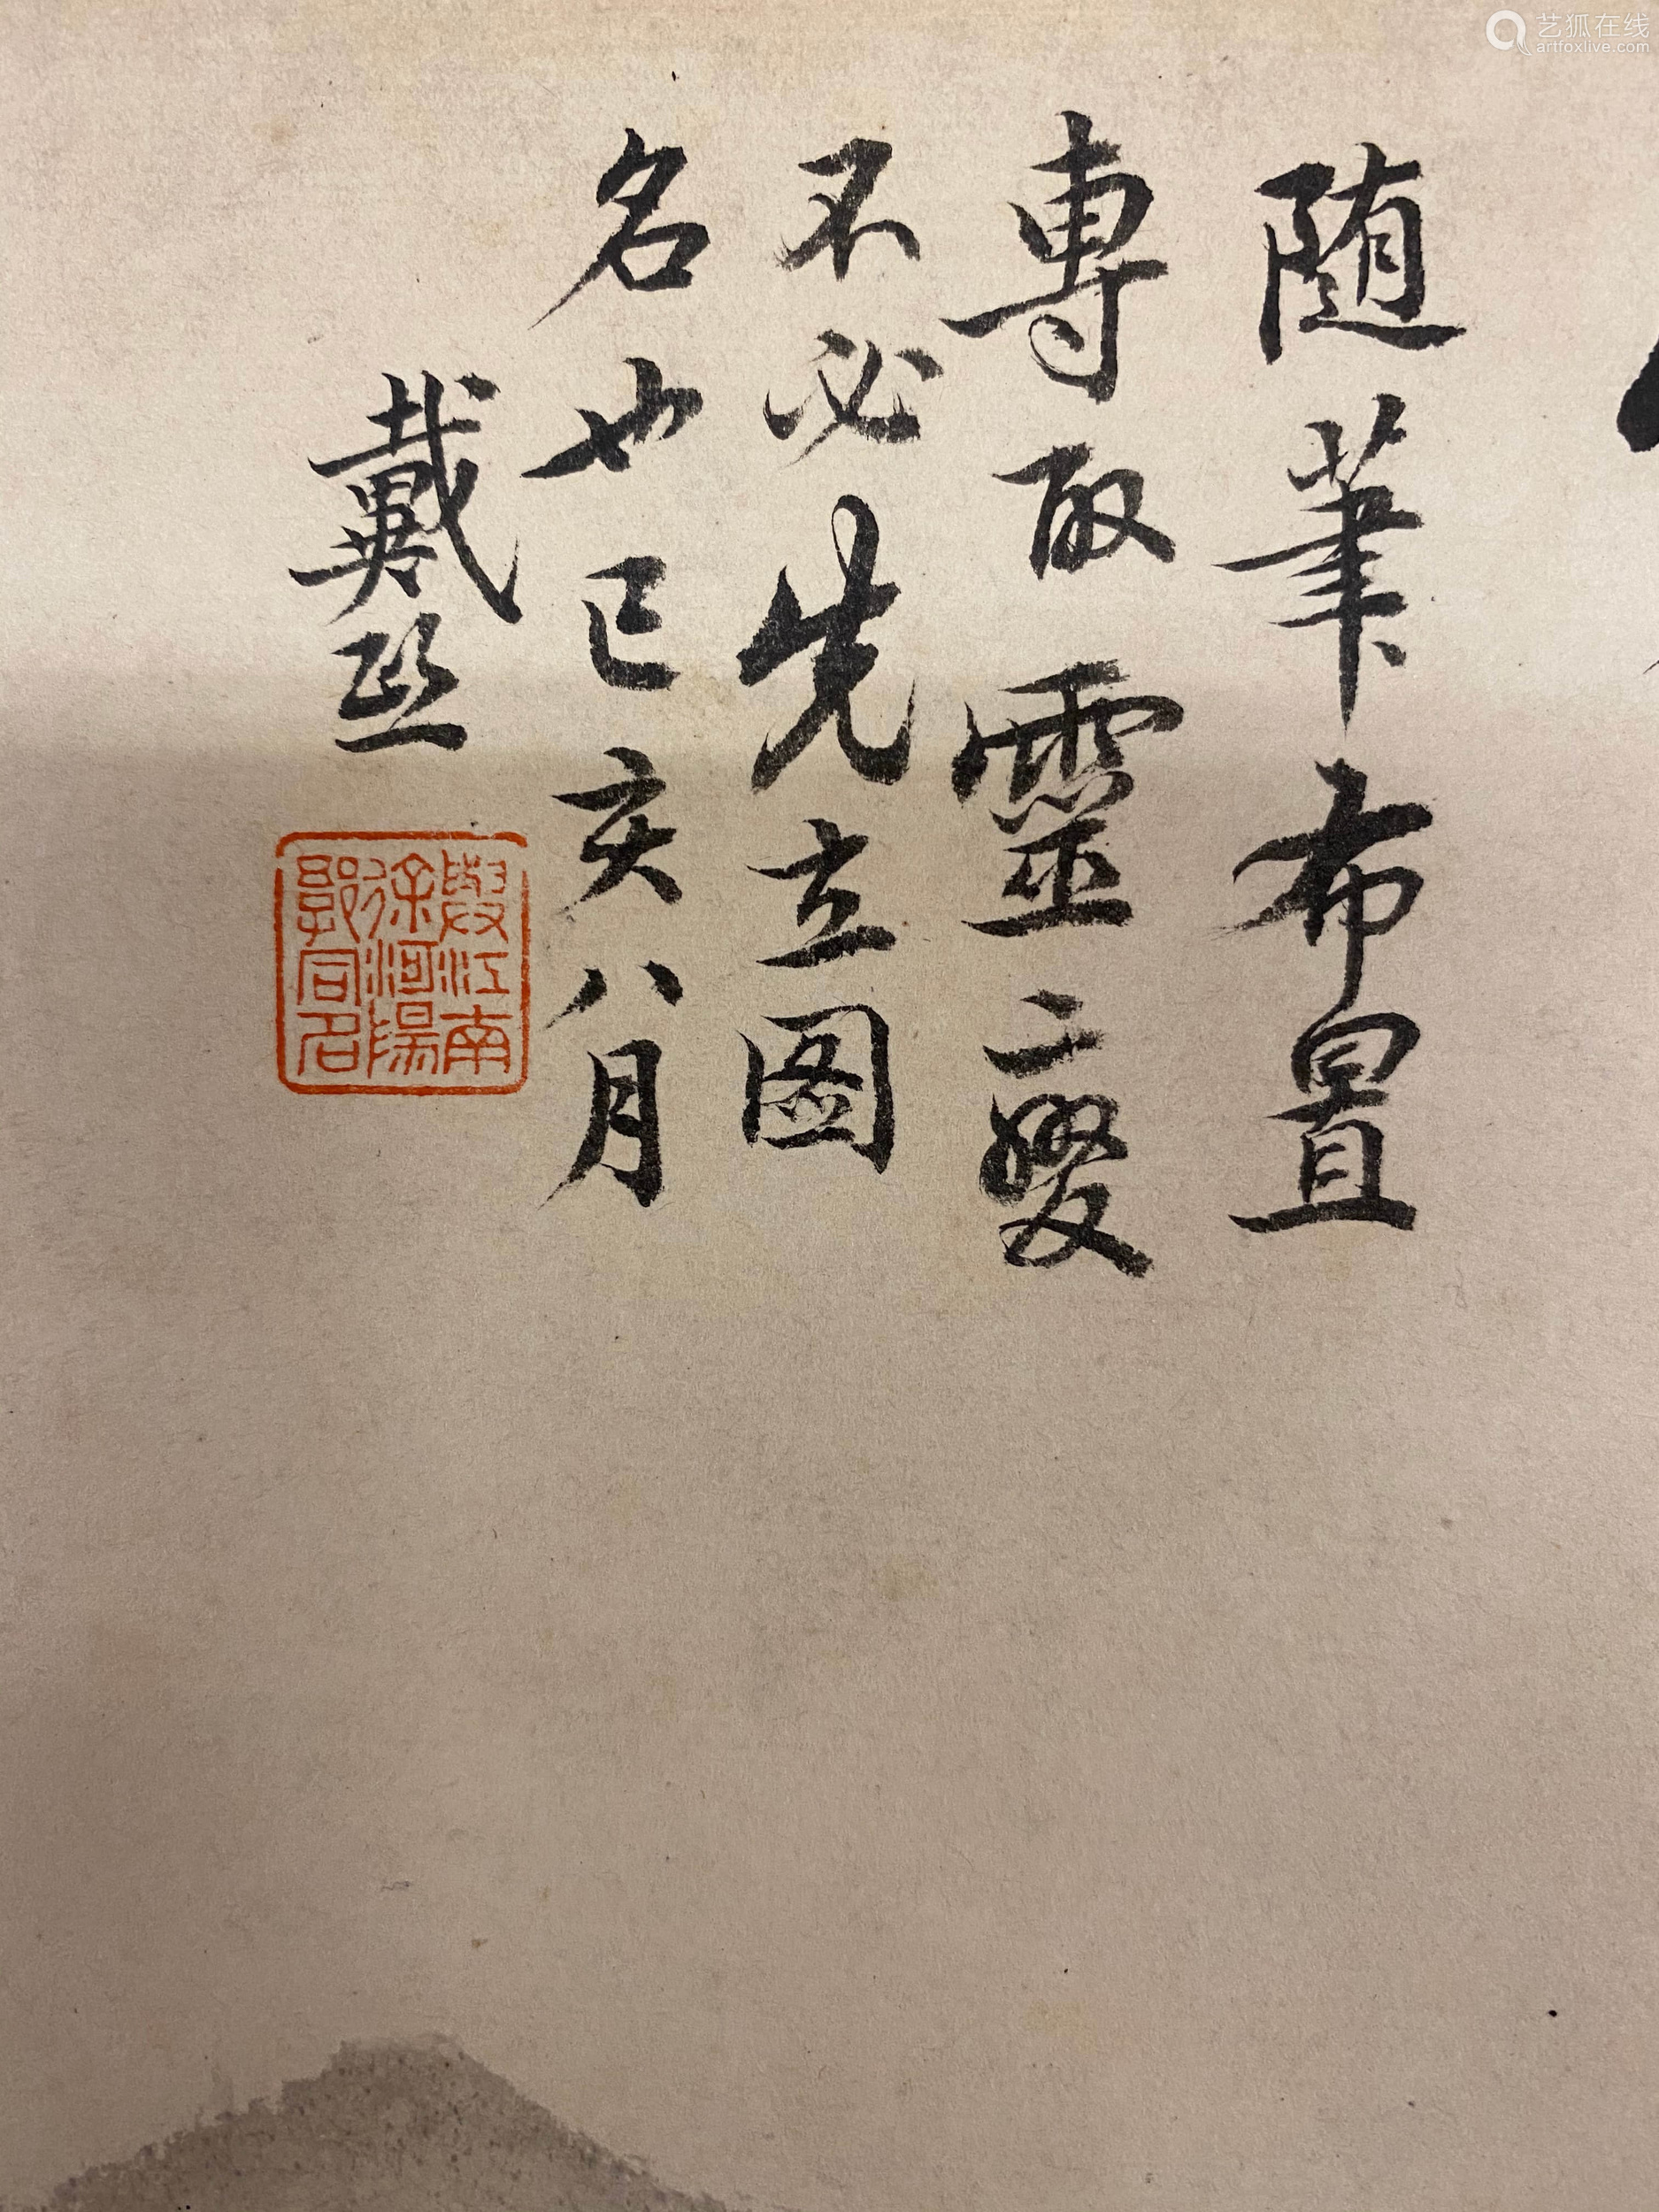 艺狐在线
artfoxlive.com
随筆布置
專取靈變
不必先立圖
名也己亥八月
戴熙
與江南
徐河陽
郭同名